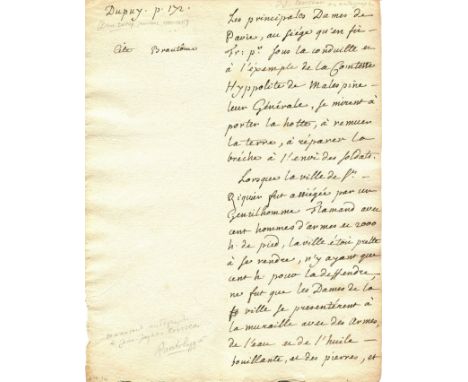 Dupuy. p. 172.
Cite Brantôme
Les principales Dames de
Pavie, au siége qu'en fit
fr. pr sous la conduitte et
à l'exemple de la Comtesse
Hyppolite de Malespine
leur Générale, se mirent à
porter la hotte, à remuer
la terre, à réparer la
brêche à l'envi des soldats.
Lorsque la ville de St
Riquier fut assiégée par un
Gentilhomme flamand avec
cent hommes d'armes et 2000
h. de pied, la ville étoit preste
à se rendre, n'y ayant que
cent h. pour la deffendre,
ne fut que les Dames de la
ville se presentérent à
la muraille avec des Armes,
de l'eau et de l'huile
bouillante, et des pierres, et
manuscrit autographe
de Jean-Jacques Rousseau